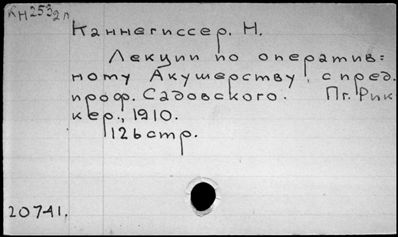 КН 253 2л
Каннегиссер, Н.
Лекции по оператив=
ному Акушерству, с пред.
проф. Садовского. Пг. Рик
кер., 1910.
126 стр.
20741.